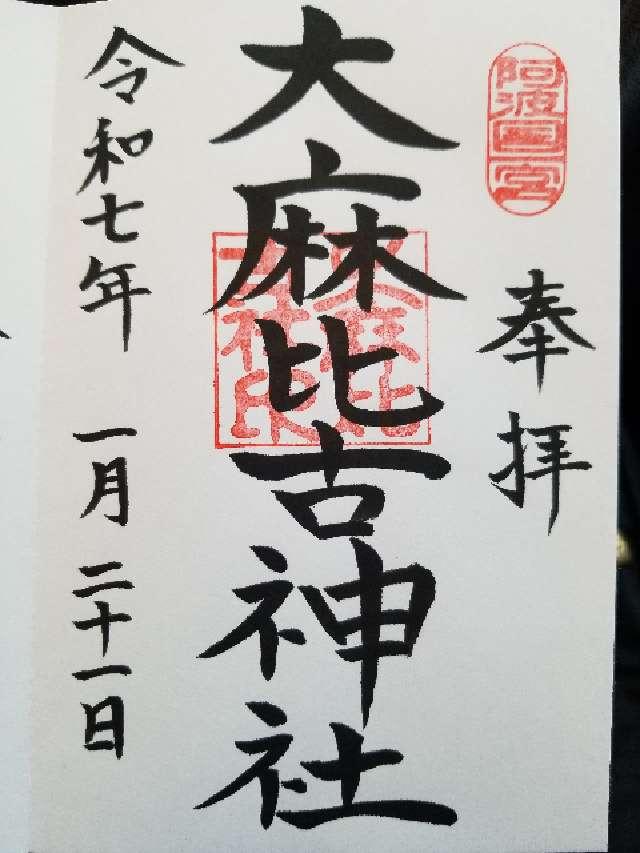 阿波国一宮
奉拝
大麻比古神社
令和七年 一月 二十一日